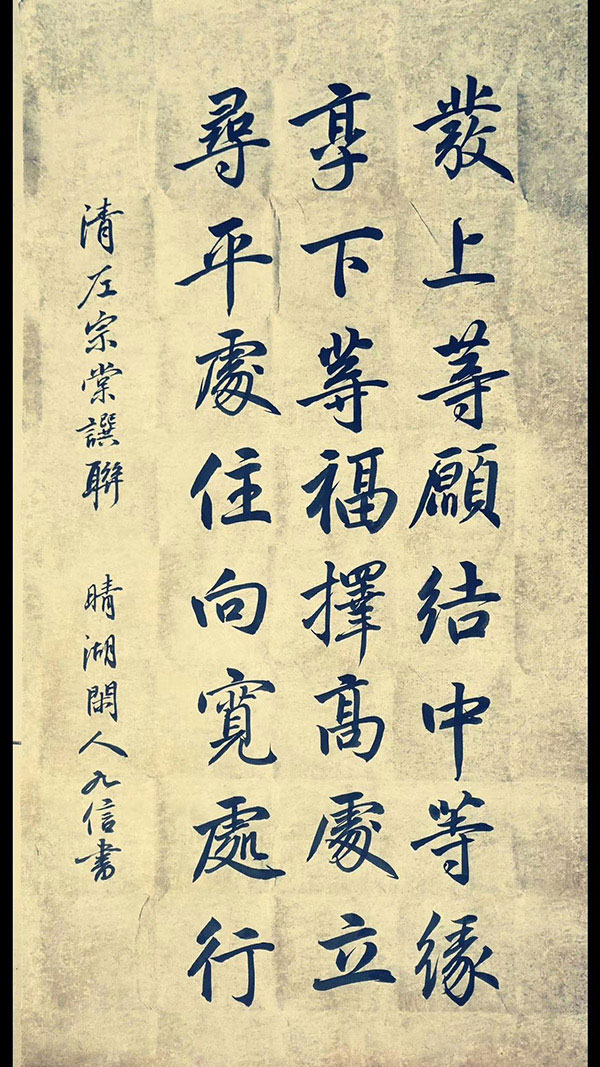 發上等願結中等緣
享下等福擇高處立
尋平處住向寬處行
清左宗棠譔聯 晴湖閑人九信書